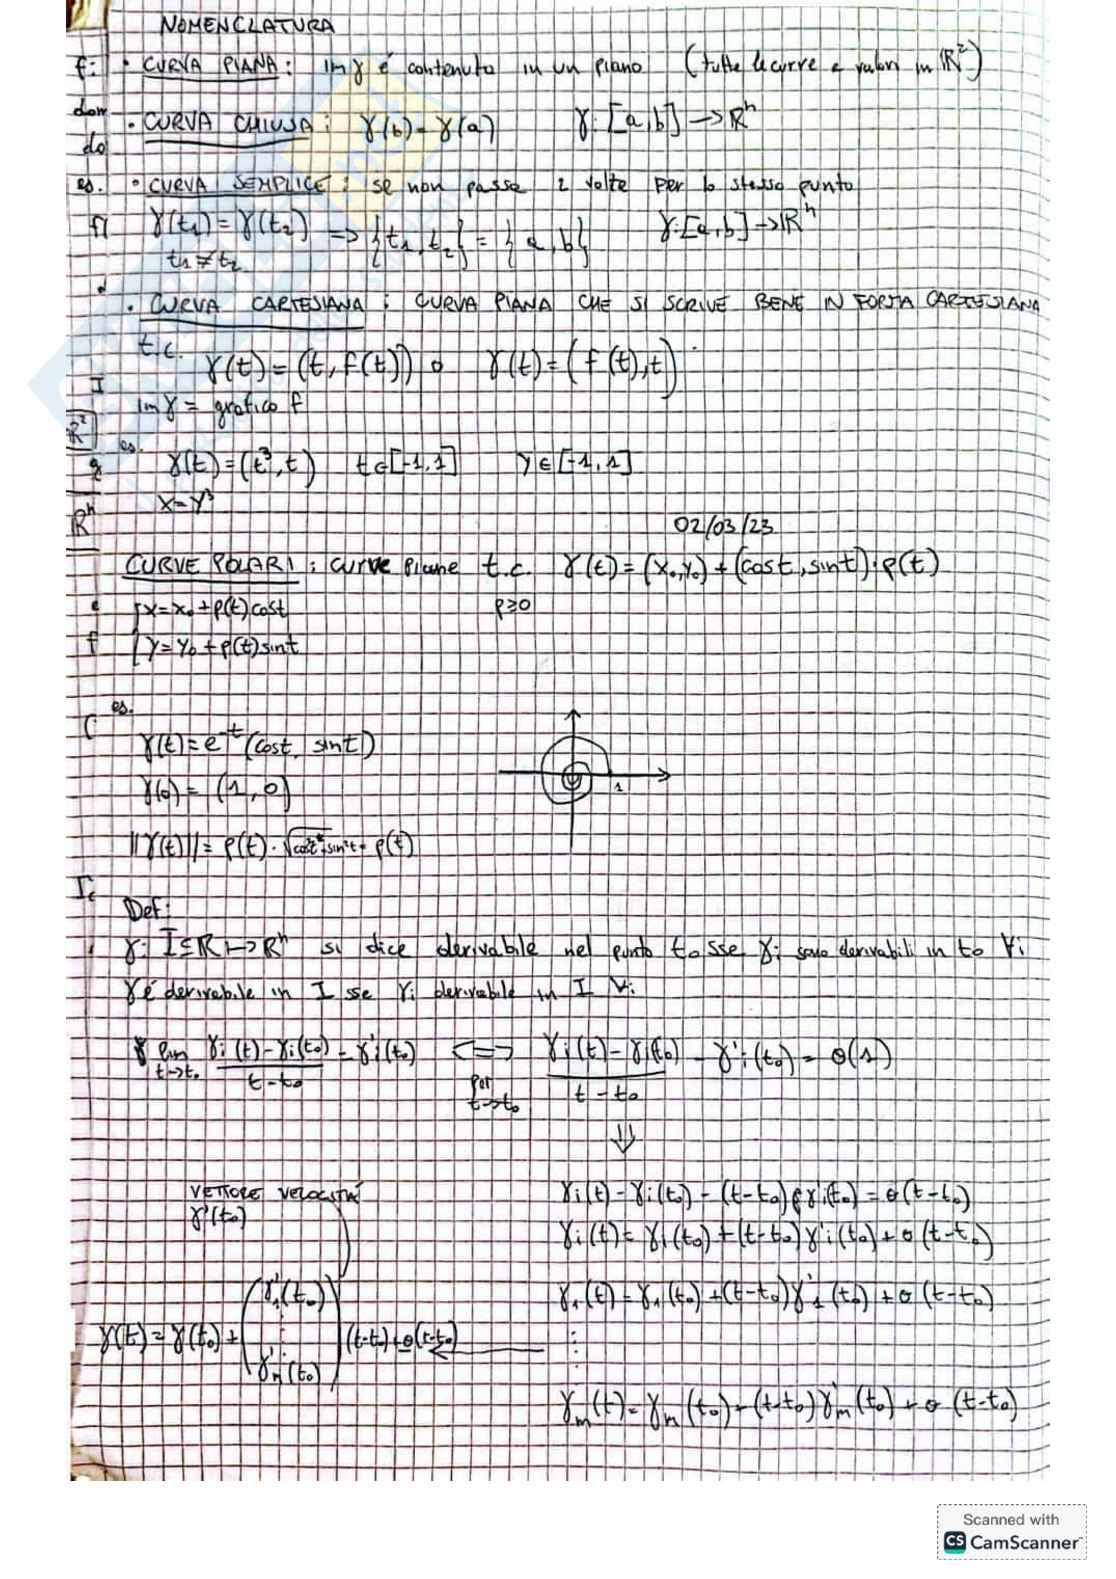 NOMENCLATURA
f: • CURVA PIANA: Im γ é contenuto in un piano (tutte le curve a valori in ℝ²)
dom • CURVA CHIUSA: γ(b)=γ(a) γ: [a,b] → ℝⁿ
do
es. • CURVA SEMPLICE: se non passa 2 volte per lo stesso punto
γ(t₁)=γ(t₂) => {t₁,t₂}={a,b} γ:[a,b]→ℝⁿ
t₁≠t₂
• CURVA CARTESIANA: CURVA PIANA CHE SI SCRIVE BENE IN FORMA CARTESIANA
t.c. γ(t)=(t,f(t)) o γ(t)=(f(t),t)
I
imγ = grafico f
ℝ²
es.
γ(t)=(t³,t) t∈[-1,1] y∈[-1,1]
x=y³
ℝⁿ
02/03/23
CURVE POLARI: curve piane t.c. γ(t)=(x₀,y₀)+(cost,sint)·ρ(t)
{x=x₀+ρ(t)cost ρ≥0
f {y=y₀+ρ(t)sint
es.
γ(t)=e⁻ᵗ(cost, sint)
γ(0)=(1,0)
1
||γ(t)||=ρ(t)·√cos²t+sin²t=ρ(t)
Def:
γ: I⊆ℝ↦ℝⁿ si dice derivabile nel punto t₀ sse γᵢ sono derivabili in t₀ ∀i
γ é derivabile in I sse γᵢ derivabile in I ∀i
lim t→t₀ (γᵢ(t)-γᵢ(t₀))/(t-t₀) = γ'ᵢ(t₀) <=> per t→t₀ (γᵢ(t)-γᵢ(t₀))/(t-t₀) - γ'ᵢ(t₀)=o(1)
⇓
VETTORE VELOCITÁ
γ'(t₀)
γᵢ(t)-γᵢ(t₀)-(t-t₀)γ'ᵢ(t₀)=o(t-t₀)
γᵢ(t)=γᵢ(t₀)+(t-t₀)γ'ᵢ(t₀)+o(t-t₀)
γ₁(t)=γ₁(t₀)+(t-t₀)γ'₁(t₀)+o(t-t₀)
γ(t)=γ(t₀)+(γ'₁(t₀) ⋮ γ'ₙ(t₀))(t-t₀)+o(t-t₀)
⋮
γₘ(t)=γₘ(t₀)+(t-t₀)γ'ₘ(t₀)+o(t-t₀)
Scanned with
CS CamScanner